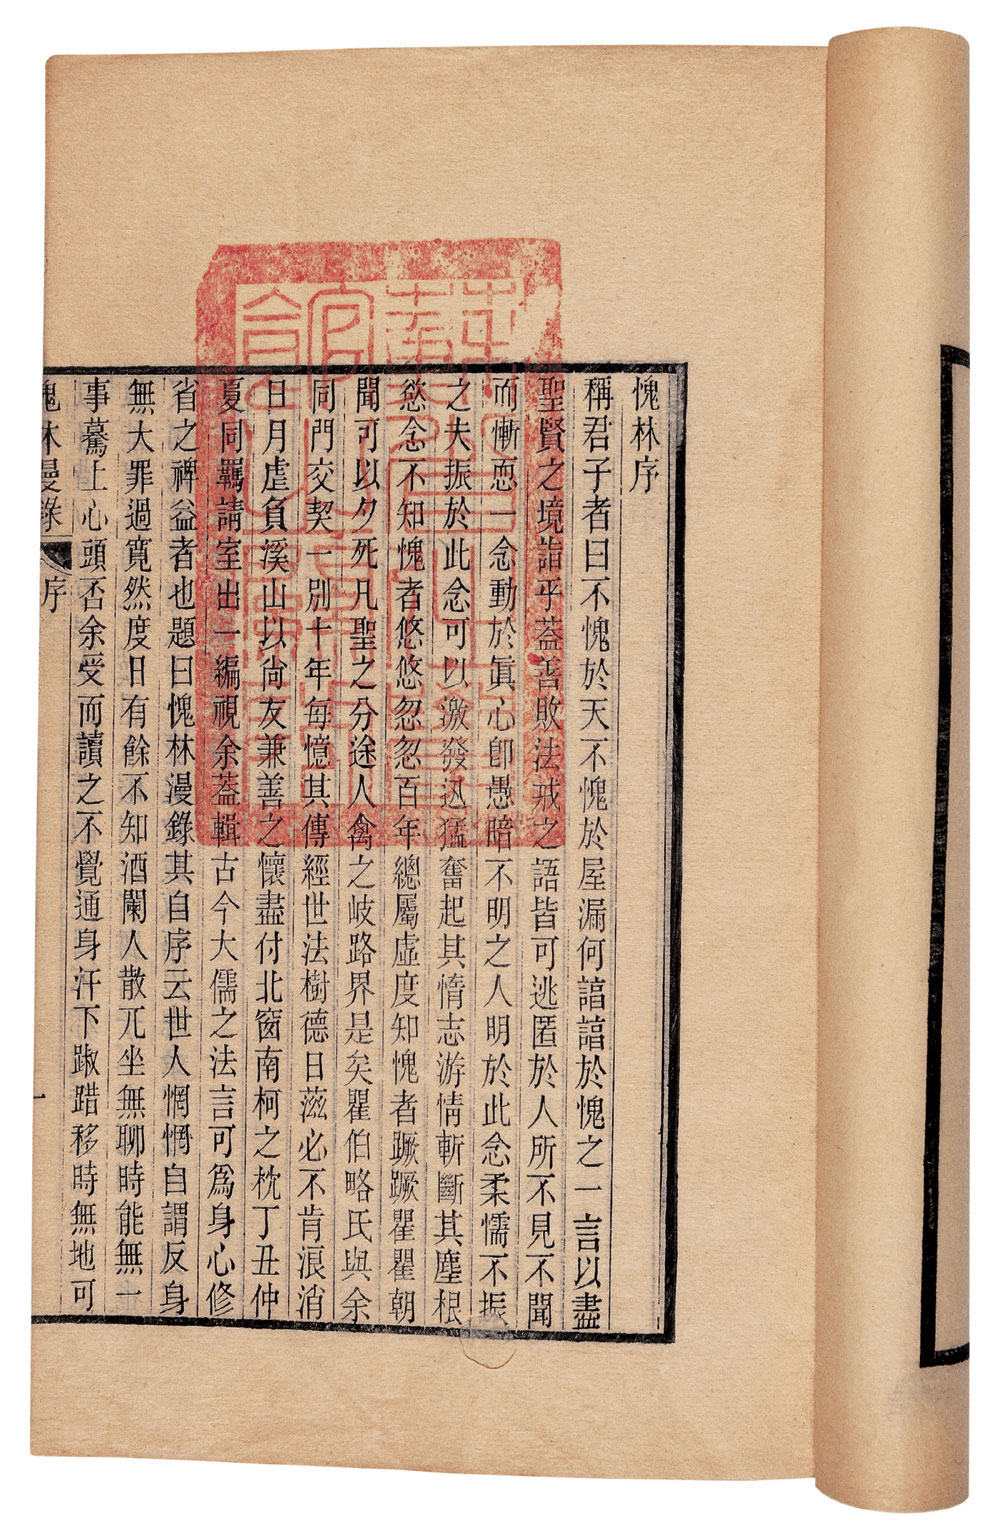 愧林序
稱君子者曰不愧於天不愧於屋漏何諳諳於愧之一言以盡
聖賢之境詣乎葢善敗法戒之語皆可逃匿於人所不見不聞
而慚恧一念動於眞心卽愚暗不明之人明於此念柔懦不振
之夫振於此念可以激發迅猛奮起其惰志游情斬斷其塵根
慾念不知愧者悠悠忽忽百年總屬虛度知愧者蹶蹶瞿瞿朝
聞可以夕死凡聖之分途人禽之岐路界是矣瞿伯略氏與余
同門交契一別十年每憶其傳經世法樹德日滋必不肯浪消
日月虛負溪山以尙友兼善之懷盡付北窗南柯之枕丁丑仲
夏同羈請室出一編視余葢輯古今大儒之法言可爲身心修
省之禆益者也題曰愧林漫錄其自序云世人惘惘自謂反身
無大罪過寬然度日有餘不知酒闌人散兀坐無聊時能無一
事驀上心頭否余受而讀之不覺通身汗下踧踖移時無地可
愧林漫錄
序
一